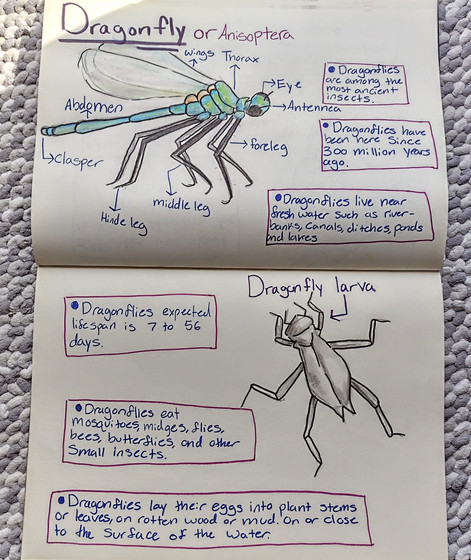 Dragonfly or Anisoptera
wings Thorax
Eye
Antennea
Abdomen
Clasper
foreleg
middle leg
Hinde leg
Dragonflies
are among the
most ancient
insects.
Dragonflies have
been here since
300 million years
ago.
Dragonflies live near
fresh water such as river-
banks, canals, ditches, ponds
and lakes
Dragonfly larva
Dragonflies expected
lifespan is 7 to 56
days.
Dragonflies eat
mosquitoes, midges, flies,
bees, butterflies, and other
small insects.
Dragonflies lay their eggs into plant stems
or leaves, on rotten wood or mud. On or close
to the surface of the water.